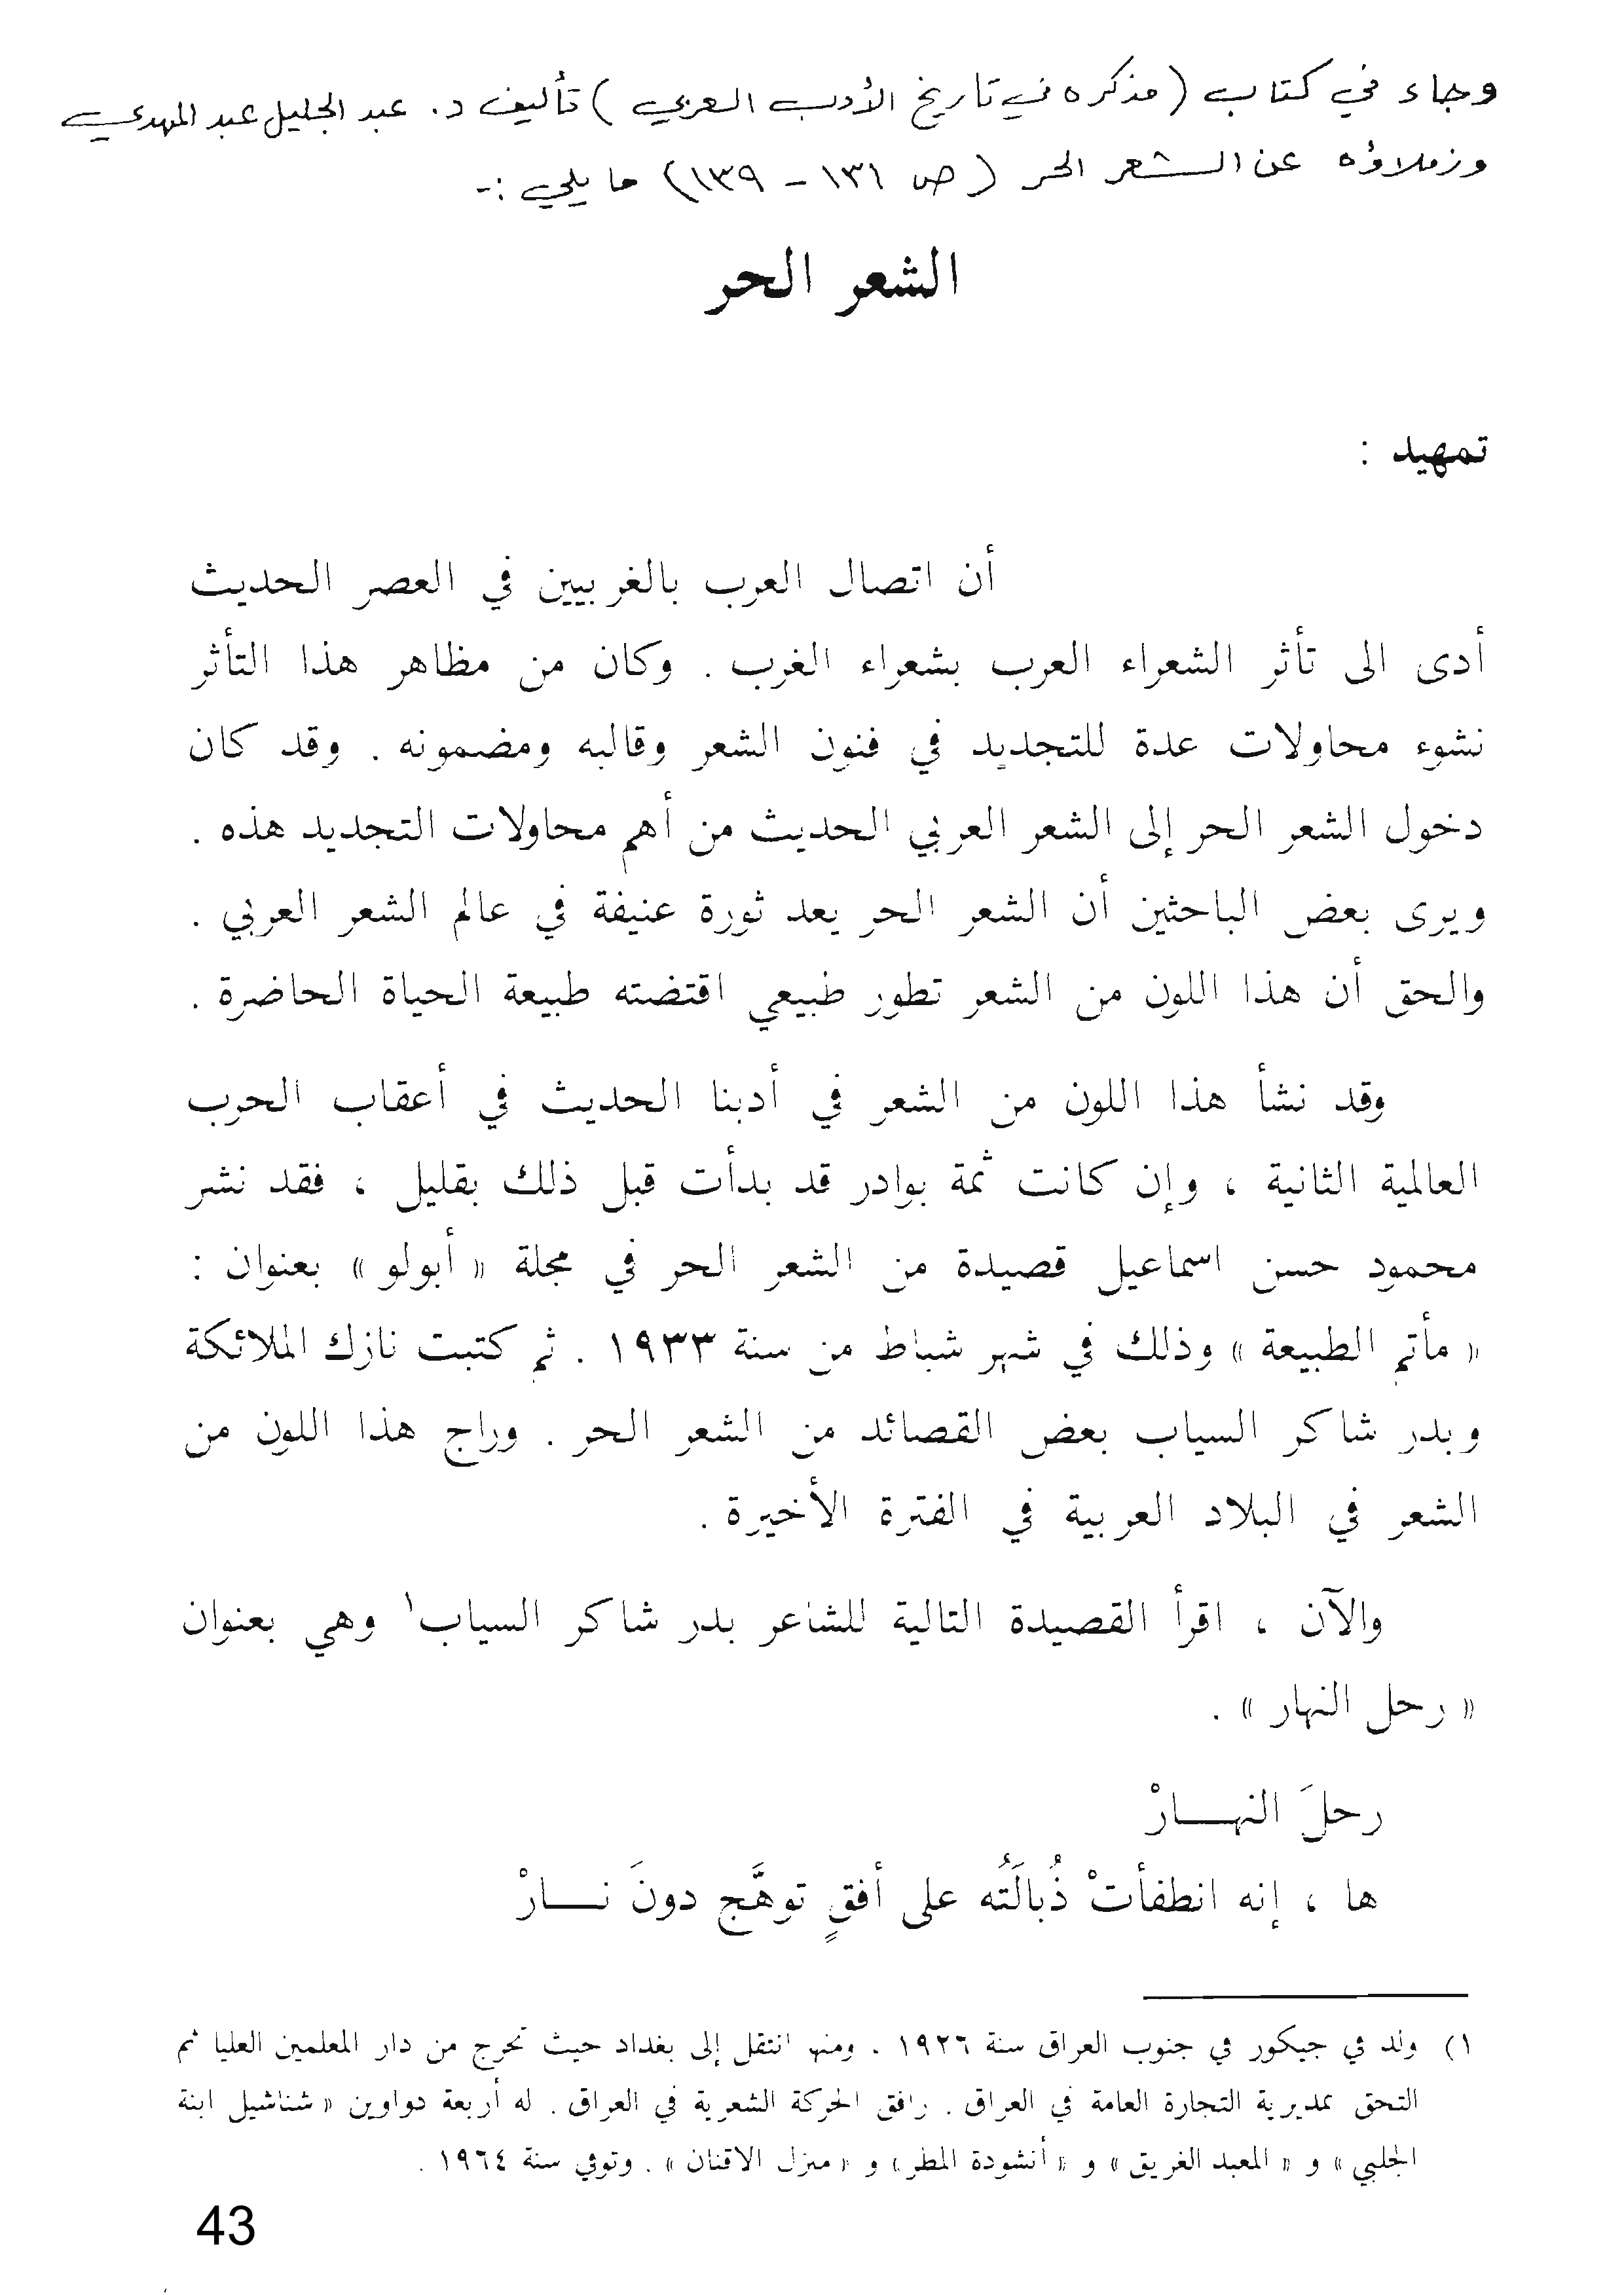 وجاء في كتاب (مذكره في تاريخ الأدب العربي) تأليف د. عبد الجليل عبد المهدي
وزملاؤه عن الشعر الحر (ص ١٣١ - ١٣٩) ما يلي :-
الشعر الحر
تمهيد :
أن اتصال العرب بالغربيين في العصر الحديث
أدى الى تأثر الشعراء العرب بشعراء الغرب . وكان من مظاهر هذا التأثر
نشوء محاولات عدة للتجديد في فنون الشعر وقالبه ومضمونه . وقد كان
دخول الشعر الحر إلى الشعر العربي الحديث من أهم محاولات التجديد هذه .
ويرى بعض الباحثين أن الشعر الحر يعد ثورة عنيفة في عالم الشعر العربي .
والحق أن هذا اللون من الشعر تطور طبيعي اقتضته طبيعة الحياة الحاضرة .
وقد نشأ هذا اللون من الشعر في أدبنا الحديث في أعقاب الحرب
العالمية الثانية ، وإن كانت ثمة بوادر قد بدأت قبل ذلك بقليل ، فقد نشر
محمود حسن اسماعيل قصيدة من الشعر الحر في مجلة « أبولو » بعنوان :
« مأتم الطبيعة » وذلك في شهر شباط من سنة ١٩٣٣ . ثم كتبت نازك الملائكة
وبدر شاكر السياب بعض القصائد من الشعر الحر . وراج هذا اللون من
الشعر في البلاد العربية في الفترة الأخيرة .
والآن ، اقرأ القصيدة التالية للشاعر بدر شاكر السياب١ وهي بعنوان
« رحل النهار » .
رحلَ النهـــارْ
ها ، إنه انطفأتْ ذُبالَتُه على أفقٍ توهَّج دونَ نـــارْ
١) ولد في جيكور في جنوب العراق سنة ١٩٢٦ . ومنها انتقل إلى بغداد حيث تخرج من دار المعلمين العليا ثم
التحق بمديرية التجارة العامة في العراق . رافق الحركة الشعرية في العراق . له أربعة دواوين « شناشيل ابنة
الجلبي » و « المعبد الغريق » و « أنشودة المطر » و « منزل الاقنان » . وتوفي سنة ١٩٦٤ .
43